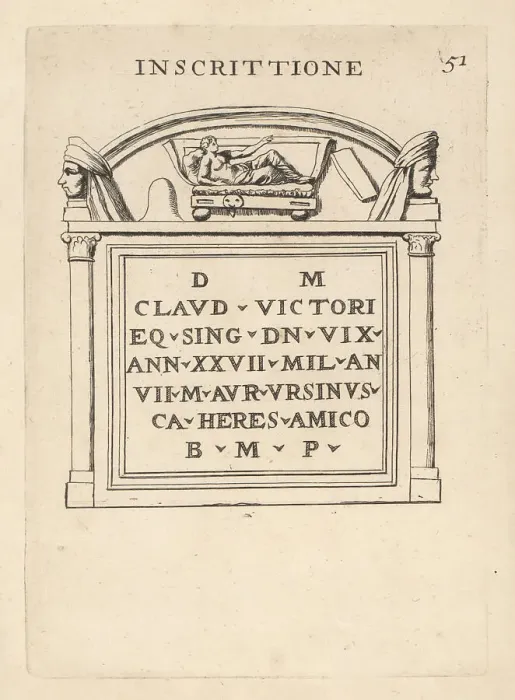 INSCRITTIONE 51
D M
CLAVD ⌄ VICTORI
EQ⌄SING⌄DN⌄VIX⌄
ANN⌄XXVII⌄MIL⌄AN
VII⌄M⌄AVR⌄VRSINVS⌄
CA⌄HERES⌄AMICO
B ⌄ M ⌄ P ⌄